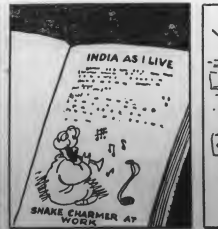 INDIA AS I LIVE
SNAKE CHARMER AT
WORK